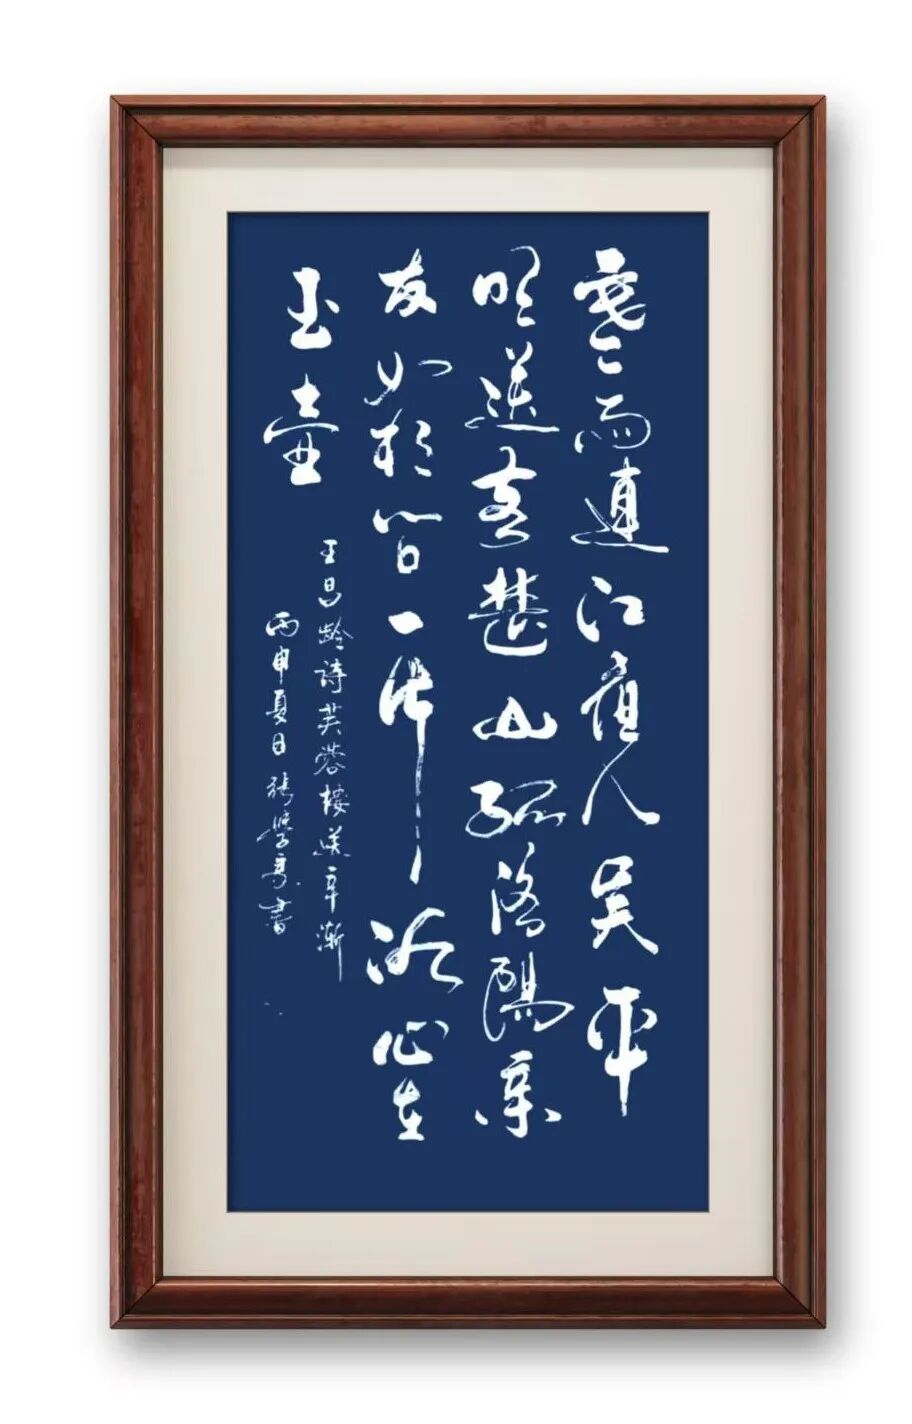 寒雨連江夜入吴平
明送客楚山孤洛陽亲
友如相问一片冰心在
玉壶
王昌龄詩芙蓉楼送辛漸
丙申夏日張學亮書